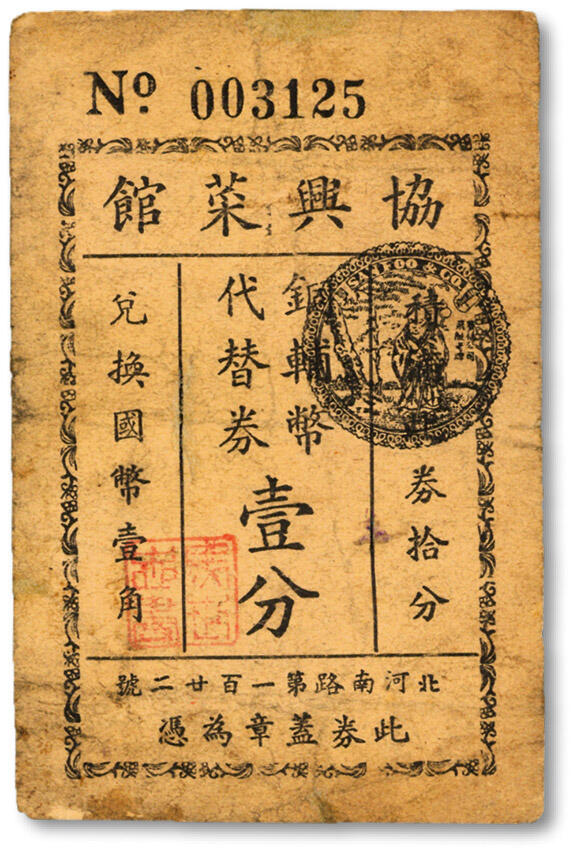 Nº 003125
協興菜館
積此券拾分
輔幣
代替券
壹分
兌換國幣壹角
北河南路第一百廿二號
此券蓋章為憑
& CO